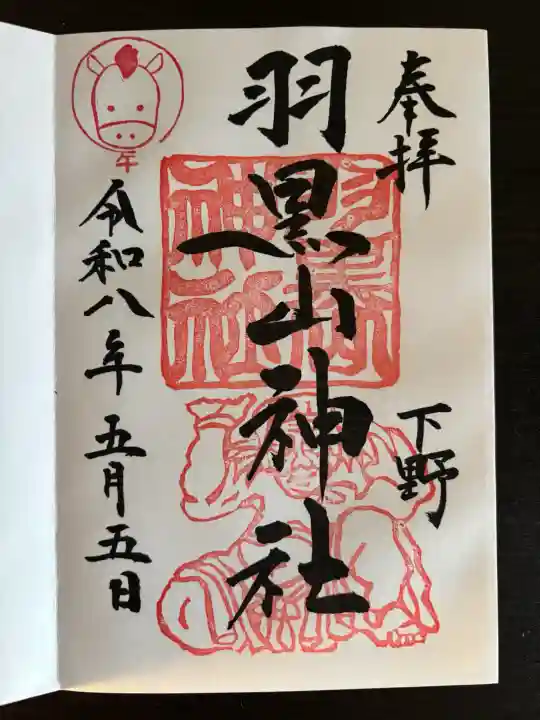 奉拝
下野
羽黒山神社
令和八年五月五日
午